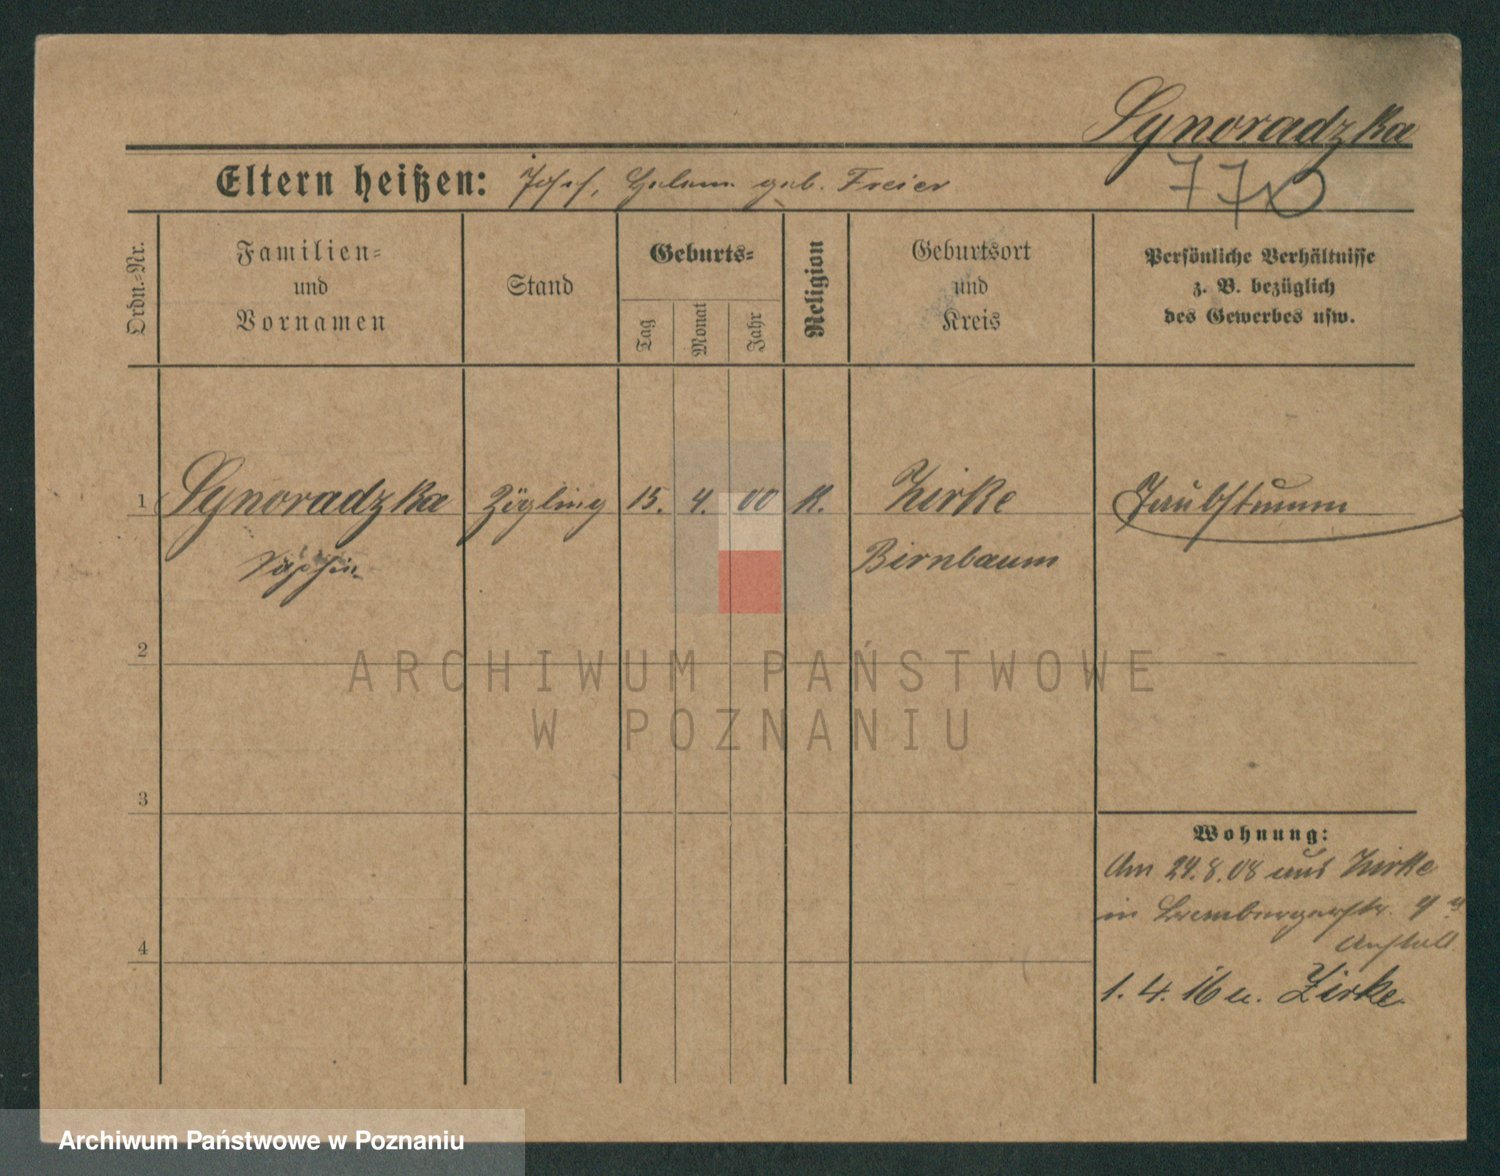 Synoradzka
Eltern heißen: Josef, Helene geb. Freier
77
Ordn.=Nr.
Familien=
und
Vornamen
Stand
Geburts=
Tag
Monat
Jahr
Religion
Geburtsort
und
Kreis
Persönliche Verhältnisse
z. B. bezüglich
des Gewerbes usw.
1 Synoradzka Zögling 15. 4. 00 K. Zirke Taubstumm
Birnbaum
2
3
4
Wohnung:
Am 24.8.08 aus Zirke
in Brombergerstr. 4
Anstalt.
1. 4. 16 n. Zirke
ARCHIWUM PAŃSTWOWE
W POZNANIU
Archiwum Państwowe w Poznaniu